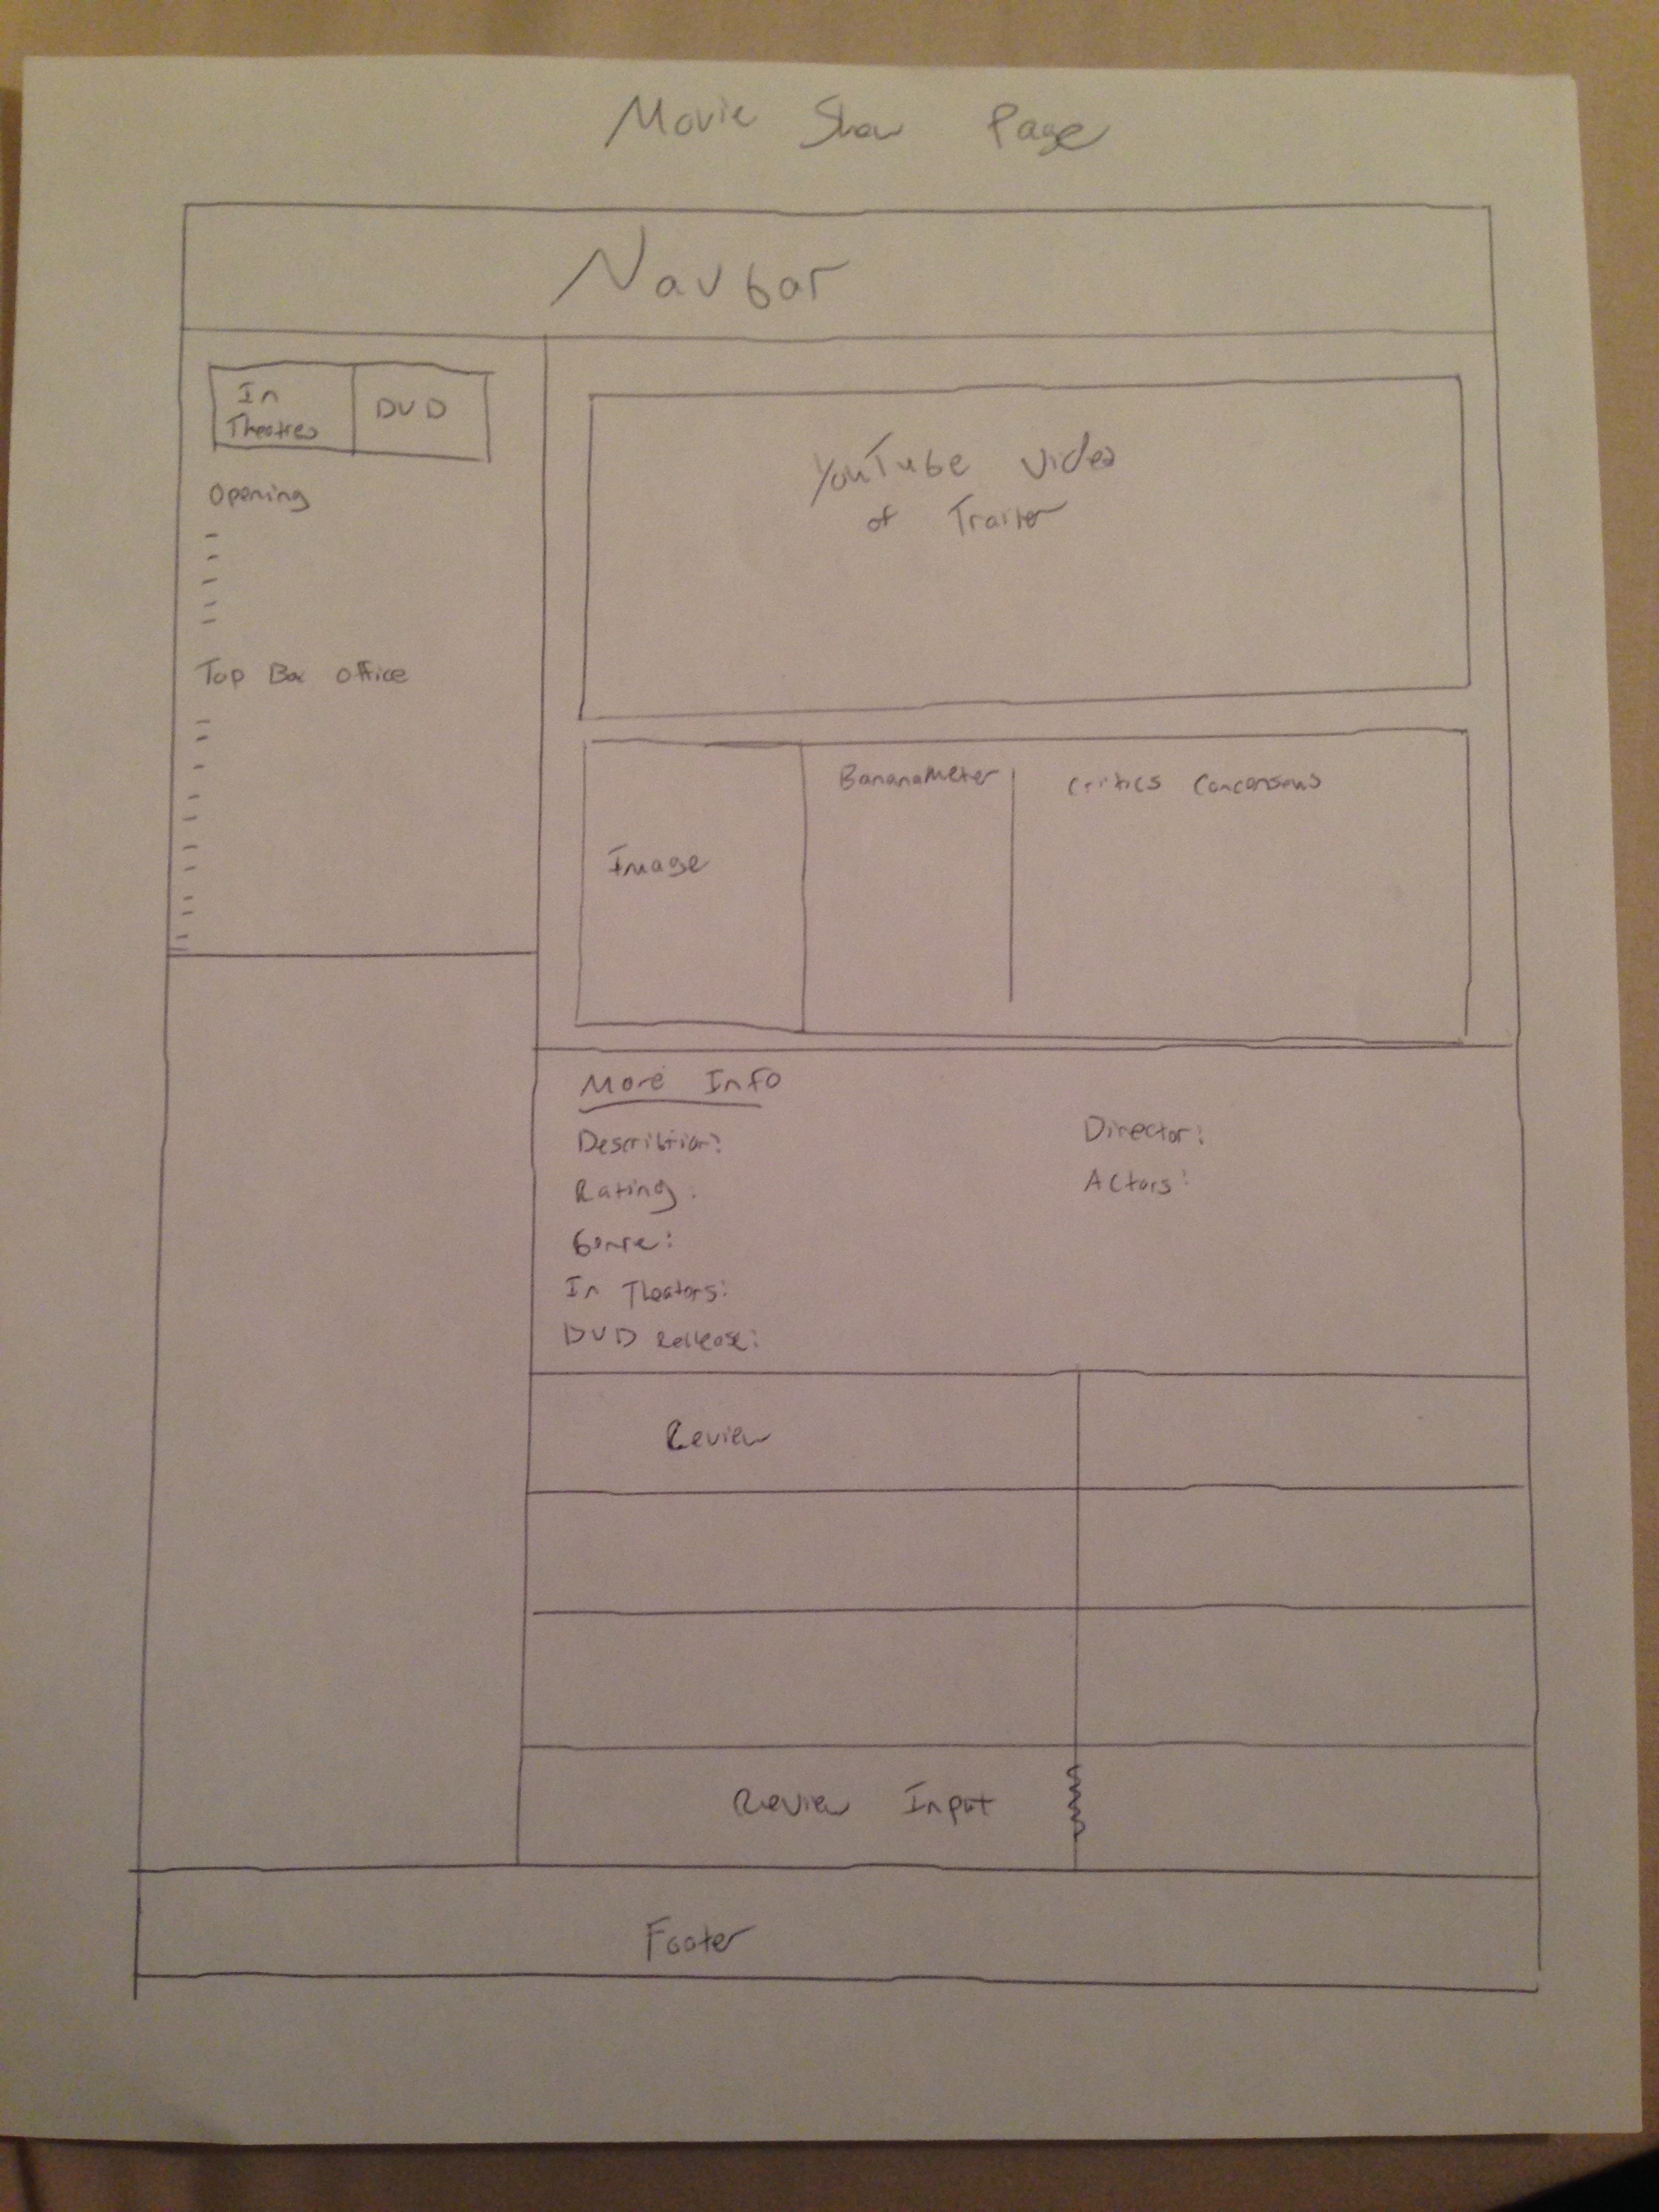 Movie Show Page
Navbar
In
Theatres
DVD
Opening
Top Box Office
YouTube Video
of Trailer
Image
BananaMeter
Critics Concensus
More Info
Describtion:
Rating:
Genre:
In Theators:
DVD Release:
Director:
Actors:
Review
Review Input
Footer